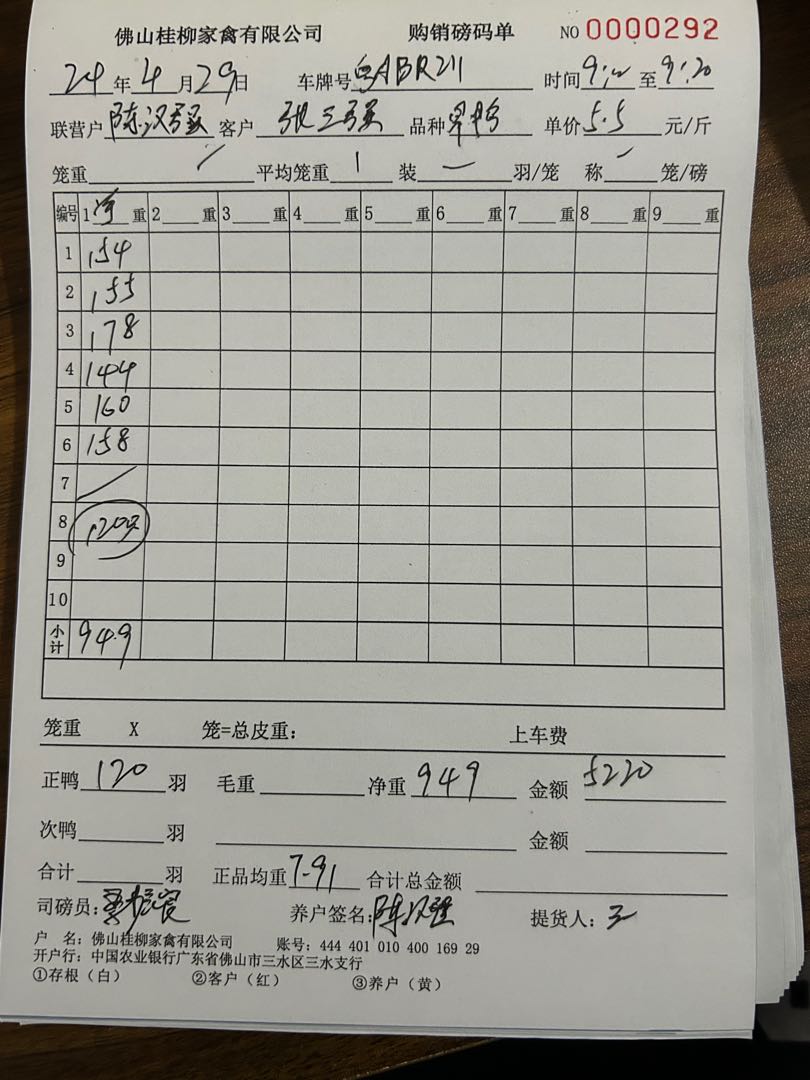 佛山桂柳家禽有限公司 购销磅码单 NO 0000292
24年4月29日 车牌号ABR211 时间9: 至9:20
联营户陈汉强 客户张三强 品种 单价5.5元/斤
笼重 / 平均笼重 1 装 一 羽/笼 称 一 笼/磅
编号 1净重 2 重 3 重 4 重 5 重 6 重 7 重 8 重 9 重
1 154
2 155
3 178
4 144
5 160
6 158
7 /
8 120只
9
10
小计 949
笼重 X 笼=总皮重: 上车费
正鸭 120 羽 毛重 净重 949 金额 5220
次鸭 羽 金额
合计 羽 正品均重 7.91 合计总金额
司磅员: 养户签名:陈汉强 提货人:
户 名: 佛山桂柳家禽有限公司 账号: 444 401 010 400 169 29
开户行: 中国农业银行广东省佛山市三水区三水支行
①存根(白) ②客户(红) ③养户(黄)